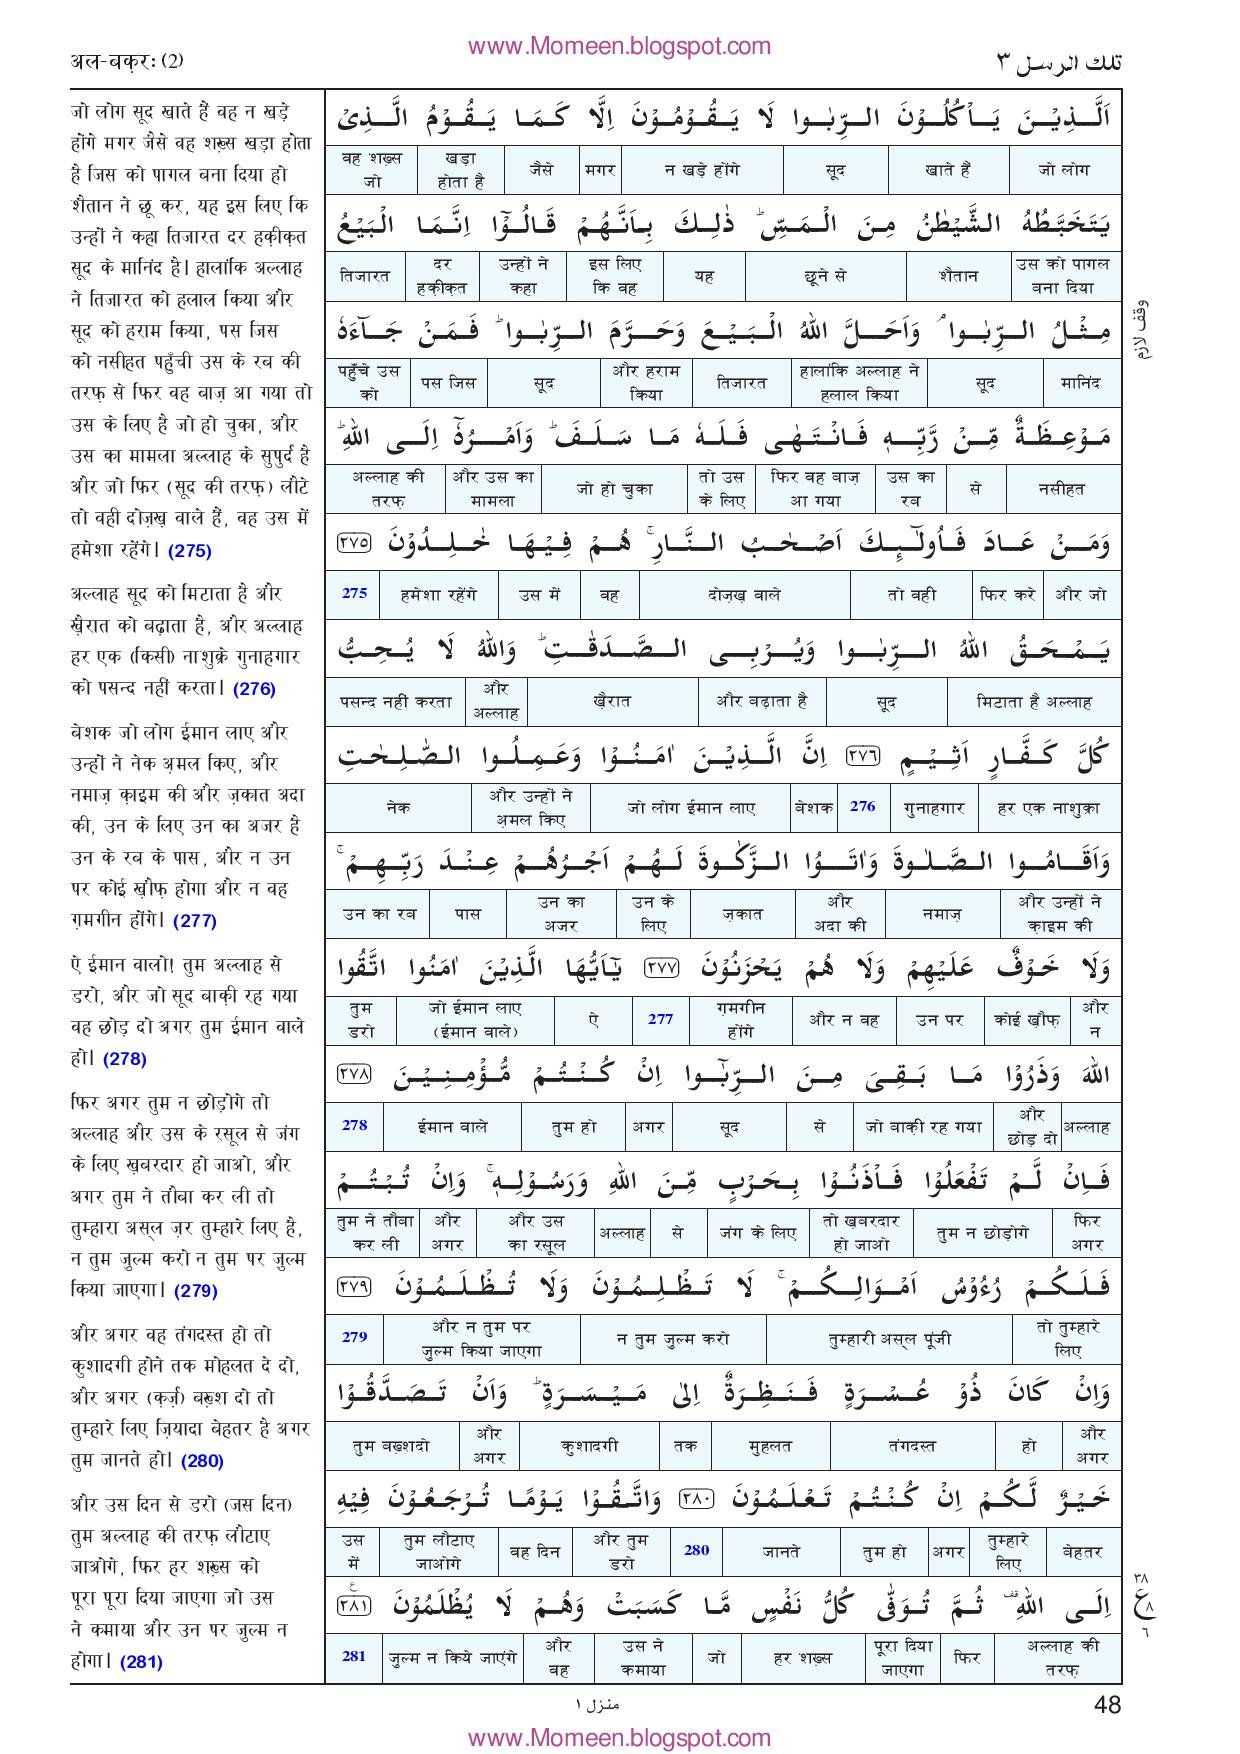 www.Momeen.blogspot.com
अल-बक़रः (2)
تلك الرسل ٣
जो लोग सूद खाते हैं वह न खड़े
होंगे मगर जैसे वह शख़्स खड़ा होता
है जिस को पागल बना दिया हो
शैतान ने छू कर, यह इस लिए कि
उन्हों ने कहा तिजारत दर हक़ीक़त
सूद के मानिंद है। हालांकि अल्लाह
ने तिजारत को हलाल किया और
सूद को हराम किया, पस जिस
को नसीहत पहुँची उस के रब की
तरफ़ से फिर वह बाज़ आ गया तो
उस के लिए है जो हो चुका, और
उस का मामला अल्लाह के सुपुर्द है
और जो फिर (सूद की तरफ़) लौटे
तो वही दोज़ख़ वाले हैं, वह उस में
हमेशा रहेंगे। (275)
अल्लाह सूद को मिटाता है और
ख़ैरात को बढ़ाता है, और अल्लाह
हर एक (किसी) नाशुक्रे गुनाहगार
को पसन्द नहीं करता। (276)
बेशक जो लोग ईमान लाए और
उन्हों ने नेक अ़मल किए, और
नमाज़ क़ाइम की और ज़कात अदा
की, उन के लिए उन का अजर है
उन के रब के पास, और न उन
पर कोई ख़ौफ़ होगा और न वह
ग़मगीन होंगे। (277)
ऐ ईमान वालो! तुम अल्लाह से
डरो, और जो सूद बाक़ी रह गया
वह छोड़ दो अगर तुम ईमान वाले
हो। (278)
फिर अगर तुम न छोड़ोगे तो
अल्लाह और उस के रसूल से जंग
के लिए ख़बरदार हो जाओ, और
अगर तुम ने तौबा कर ली तो
तुम्हारा अस्ल ज़र तुम्हारे लिए है,
न तुम जुल्म करो न तुम पर जुल्म
किया जाएगा। (279)
और अगर वह तंगदस्त हो तो
कुशादगी होने तक मोहलत दे दो,
और अगर (क़र्ज़) बख़्श दो तो
तुम्हारे लिए ज़ियादा बेहतर है अगर
तुम जानते हो। (280)
और उस दिन से डरो (जस दिन)
तुम अल्लाह की तरफ़ लौटाए
जाओगे, फिर हर शख़्स को
पूरा पूरा दिया जाएगा जो उस
ने कमाया और उन पर जुल्म न
होगा। (281)
اَلَّذِيْنَ يَاْكُلُوْنَ الرِّبٰوا لَا يَقُوْمُوْنَ اِلَّا كَمَا يَقُوْمُ الَّذِىْ
जो लोग खाते हैं सूद न खड़े होंगे मगर जैसे खड़ा होता है वह शख़्स जो
يَتَخَبَّطُهُ الشَّيْطٰنُ مِنَ الْمَسِّ ؕ ذٰلِكَ بِاَنَّهُمْ قَالُوْٓا اِنَّمَا الْبَيْعُ
उस को पागल बना दिया शैतान छूने से यह इस लिए कि वह उन्हों ने कहा दर हक़ीक़त तिजारत
مِثْلُ الرِّبٰوا ۘ وَاَحَلَّ اللهُ الْبَيْعَ وَحَرَّمَ الرِّبٰوا ؕ فَمَنْ جَآءَهٗ
وقف لازم
मानिंद सूद हालांकि अल्लाह ने हलाल किया तिजारत और हराम किया सूद पस जिस पहुँचे उस को
مَوْعِظَةٌ مِّنْ رَّبِّهٖ فَانْتَهٰى فَلَهٗ مَا سَلَفَ ؕ وَاَمْرُهٗٓ اِلَى اللهِ ؕ
नसीहत से उस का रब फिर वह बाज़ आ गया तो उस के लिए जो हो चुका और उस का मामला अल्लाह की तरफ़
وَمَنْ عَادَ فَاُولٰٓئِكَ اَصْحٰبُ النَّارِ ۚ هُمْ فِيْهَا خٰلِدُوْنَ ٢٧٥
और जो फिर करे तो वही दोज़ख़ वाले वह उस में हमेशा रहेंगे 275
يَمْحَقُ اللهُ الرِّبٰوا وَيُرْبِى الصَّدَقٰتِ ؕ وَاللهُ لَا يُحِبُّ
मिटाता है अल्लाह सूद और बढ़ाता है ख़ैरात और अल्लाह पसन्द नहीं करता
كُلَّ كَفَّارٍ اَثِيْمٍ ٢٧٦ اِنَّ الَّذِيْنَ اٰمَنُوْا وَعَمِلُوا الصّٰلِحٰتِ
हर एक नाशुक्रा गुनाहगार 276 बेशक जो लोग ईमान लाए और उन्हों ने अ़मल किए नेक
وَاَقَامُوا الصَّلٰوةَ وَاٰتَوُا الزَّكٰوةَ لَهُمْ اَجْرُهُمْ عِنْدَ رَبِّهِمْ ۚ
और उन्हों ने क़ाइम की नमाज़ और अदा की ज़कात उन के लिए उन का अजर पास उन का रब
وَلَا خَوْفٌ عَلَيْهِمْ وَلَا هُمْ يَحْزَنُوْنَ ٢٧٧ يٰٓاَيُّهَا الَّذِيْنَ اٰمَنُوا اتَّقُوا
और न कोई ख़ौफ़ उन पर और न वह ग़मगीन होंगे 277 ऐ जो ईमान लाए (ईमान वाले) तुम डरो
اللهَ وَذَرُوْا مَا بَقِىَ مِنَ الرِّبٰٓوا اِنْ كُنْتُمْ مُّؤْمِنِيْنَ ٢٧٨
अल्लाह और छोड़ दो जो बाक़ी रह गया से सूद अगर तुम हो ईमान वाले 278
فَاِنْ لَّمْ تَفْعَلُوْا فَاْذَنُوْا بِحَرْبٍ مِّنَ اللهِ وَرَسُوْلِهٖ ۚ وَاِنْ تُبْتُمْ
फिर अगर तुम न छोड़ोगे तो ख़बरदार हो जाओ जंग के लिए से अल्लाह और उस का रसूल और अगर तुम ने तौबा कर ली
فَلَكُمْ رُءُوْسُ اَمْوَالِكُمْ ۚ لَا تَظْلِمُوْنَ وَلَا تُظْلَمُوْنَ ٢٧٩
तो तुम्हारे लिए तुम्हारी अस्ल पूंजी न तुम जुल्म करो और न तुम पर जुल्म किया जाएगा 279
وَاِنْ كَانَ ذُوْ عُسْرَةٍ فَنَظِرَةٌ اِلٰى مَيْسَرَةٍ ؕ وَاَنْ تَصَدَّقُوْا
और अगर हो तंगदस्त मुहलत तक कुशादगी और अगर तुम बख़्शदो
خَيْرٌ لَّكُمْ اِنْ كُنْتُمْ تَعْلَمُوْنَ ٢٨٠ وَاتَّقُوْا يَوْمًا تُرْجَعُوْنَ فِيْهِ
बेहतर तुम्हारे लिए अगर तुम हो जानते 280 और तुम डरो वह दिन तुम लौटाए जाओगे उस में
اِلَى اللهِ ۗ ثُمَّ تُوَفّٰى كُلُّ نَفْسٍ مَّا كَسَبَتْ وَهُمْ لَا يُظْلَمُوْنَ ٢٨١
٣٨ ع ٨ ٦
अल्लाह की तरफ़ फिर पूरा दिया जाएगा हर शख़्स जो उस ने कमाया और वह जुल्म न किये जाएंगे 281
منزل ١
48
www.Momeen.blogspot.com